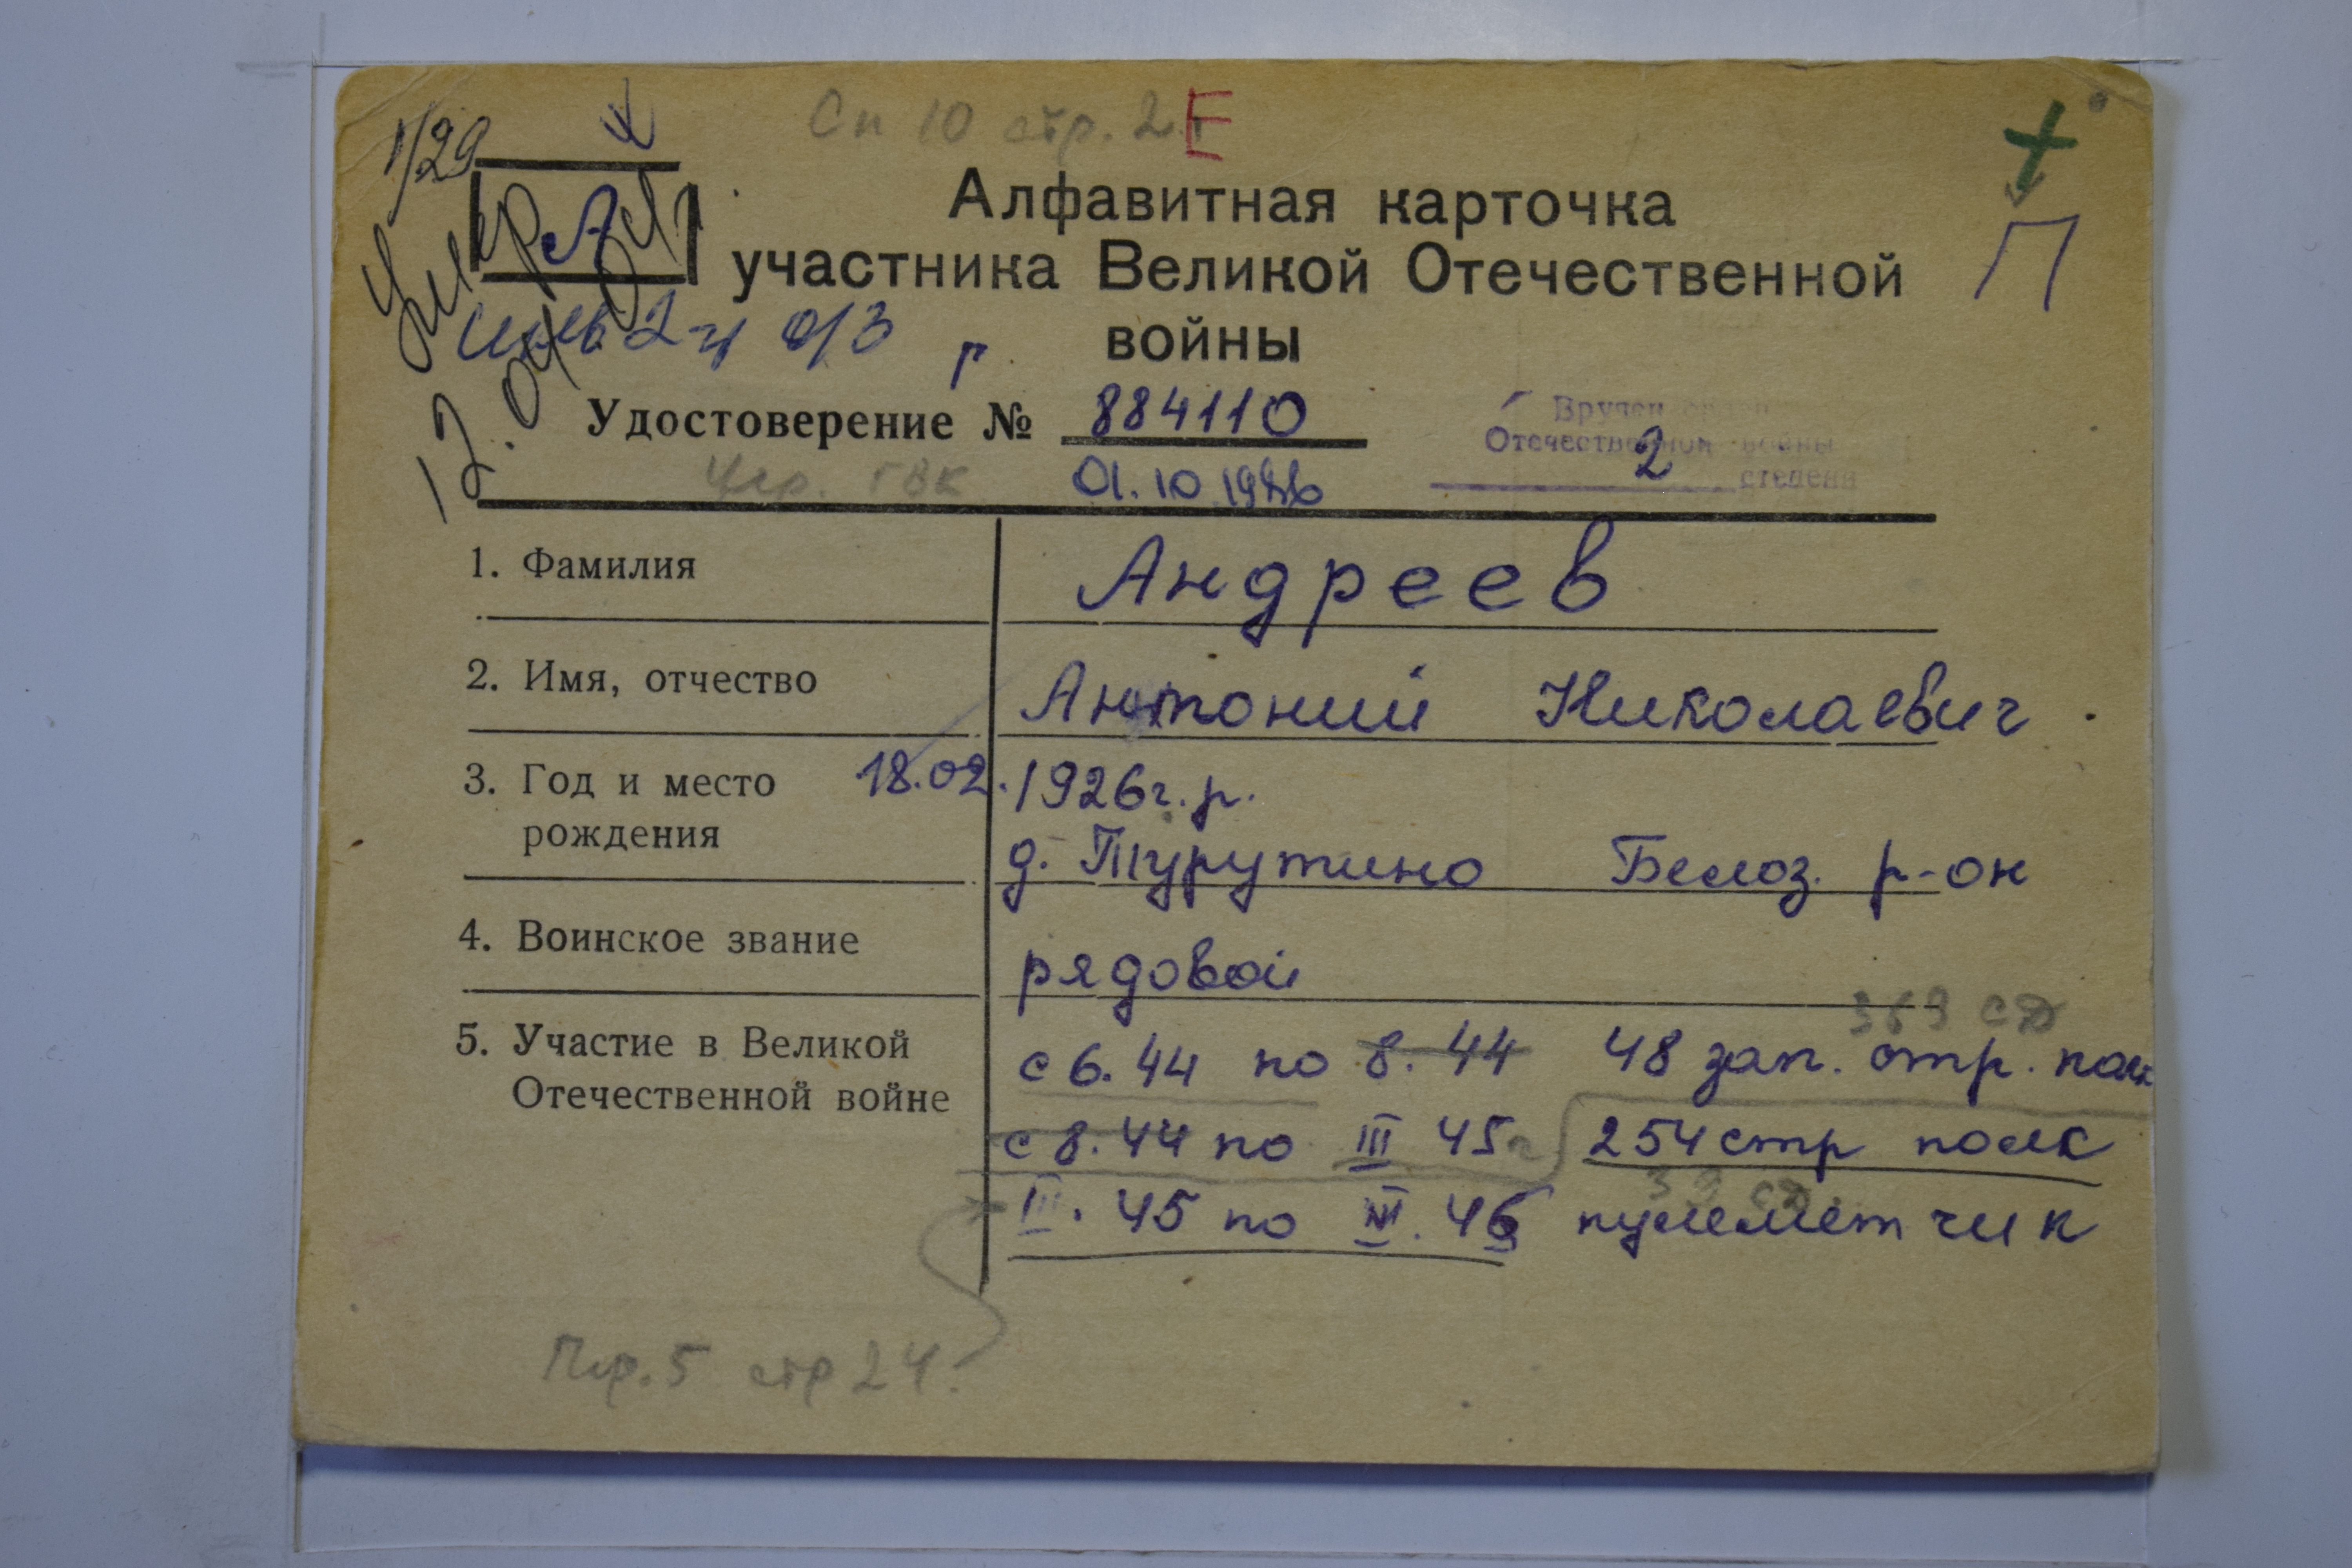 Сп 10 стр. 2
Е
1/29
А
П
Умер
12.04.
Алфавитная карточка
участника Великой Отечественной
войны
инв 2-й о/з
р
Удостоверение № 884110
Чер. ГВК
01.10 1986
Вручен орден
Отечественной войны
2 степени
1. Фамилия
Андреев
2. Имя, отчество
Антоний Николаевич
3. Год и место
рождения
18.02.1926г.р.
д. Турутино Белоз. р-он
4. Воинское звание
рядовой
5. Участие в Великой
Отечественной войне
СД
с 6.44 по 8.44 48 зап. стр. полк
с 8.44 по III 45г 254 стр полк
СД
III. 45 по 46 пулеметчик
Пр. 5 стр 24.